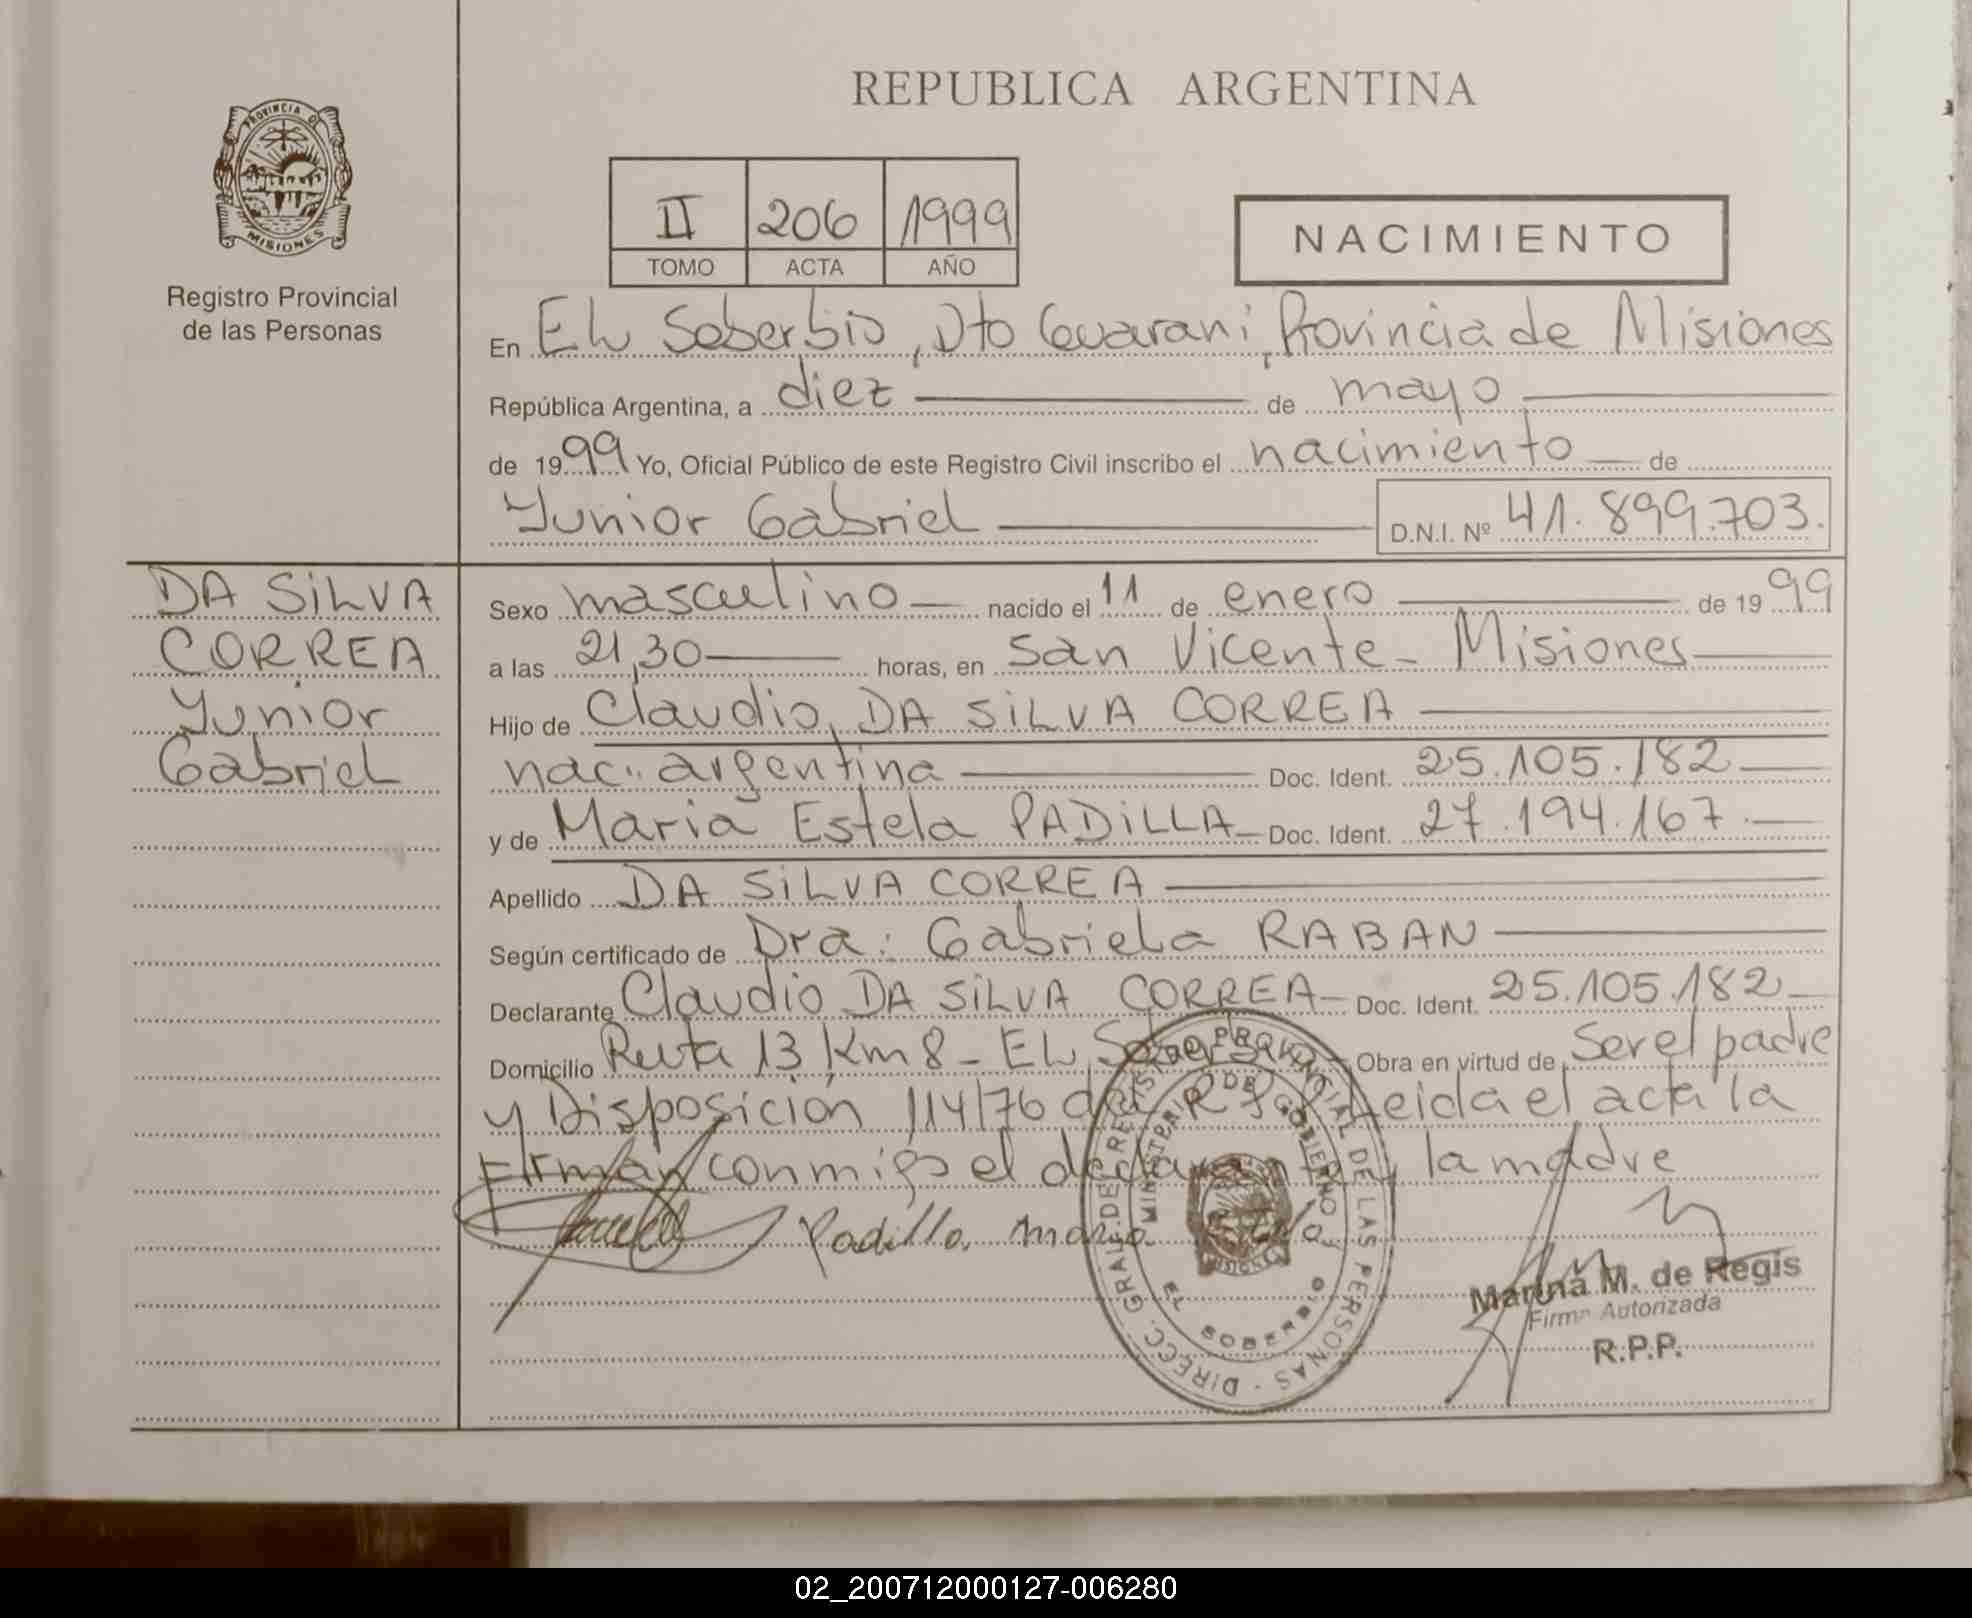 REPUBLICA ARGENTINA
PROVINCIA DE
MISIONES
Registro Provincial
de las Personas
II 206 1999
TOMO ACTA AÑO
NACIMIENTO
En EL Soberbio, Dto Guarani, Provincia de Misiones
República Argentina, a diez de mayo
de 1999 Yo, Oficial Público de este Registro Civil inscribo el nacimiento de
Yunior Gabriel D.N.I. Nº 41.899.703.
DA SILVA
CORREA
Yunior
Gabriel
Sexo masculino nacido el 11 de enero de 1999
a las 21,30 horas, en San Vicente - Misiones
Hijo de Claudio, DA SILVA CORREA
nac. argentina Doc. Ident. 25.105.182
y de Maria Estela PADILLA Doc. Ident. 27.194.167.
Apellido DA SILVA CORREA
Según certificado de Dra: Gabriela RABAN
Declarante Claudio DA SILVA CORREA Doc. Ident. 25.105.182
Domicilio Ruta 13 Km 8 - EL Soberbio Obra en virtud de ser el padre
y Disposición 114/76 del R.P.P. Leida el acta la
Firman conmigo el declarante y la madre
Padilla Maria Estela
DIRECC. GRAL. DE REGISTRO PROVINCIAL DE LAS PERSONAS -
MINISTERIO DE GOBIERNO
EL SOBERBIO
MISIONES
Marina M. de Regis
Firma Autorizada
R.P.P.
02_200712000127-006280